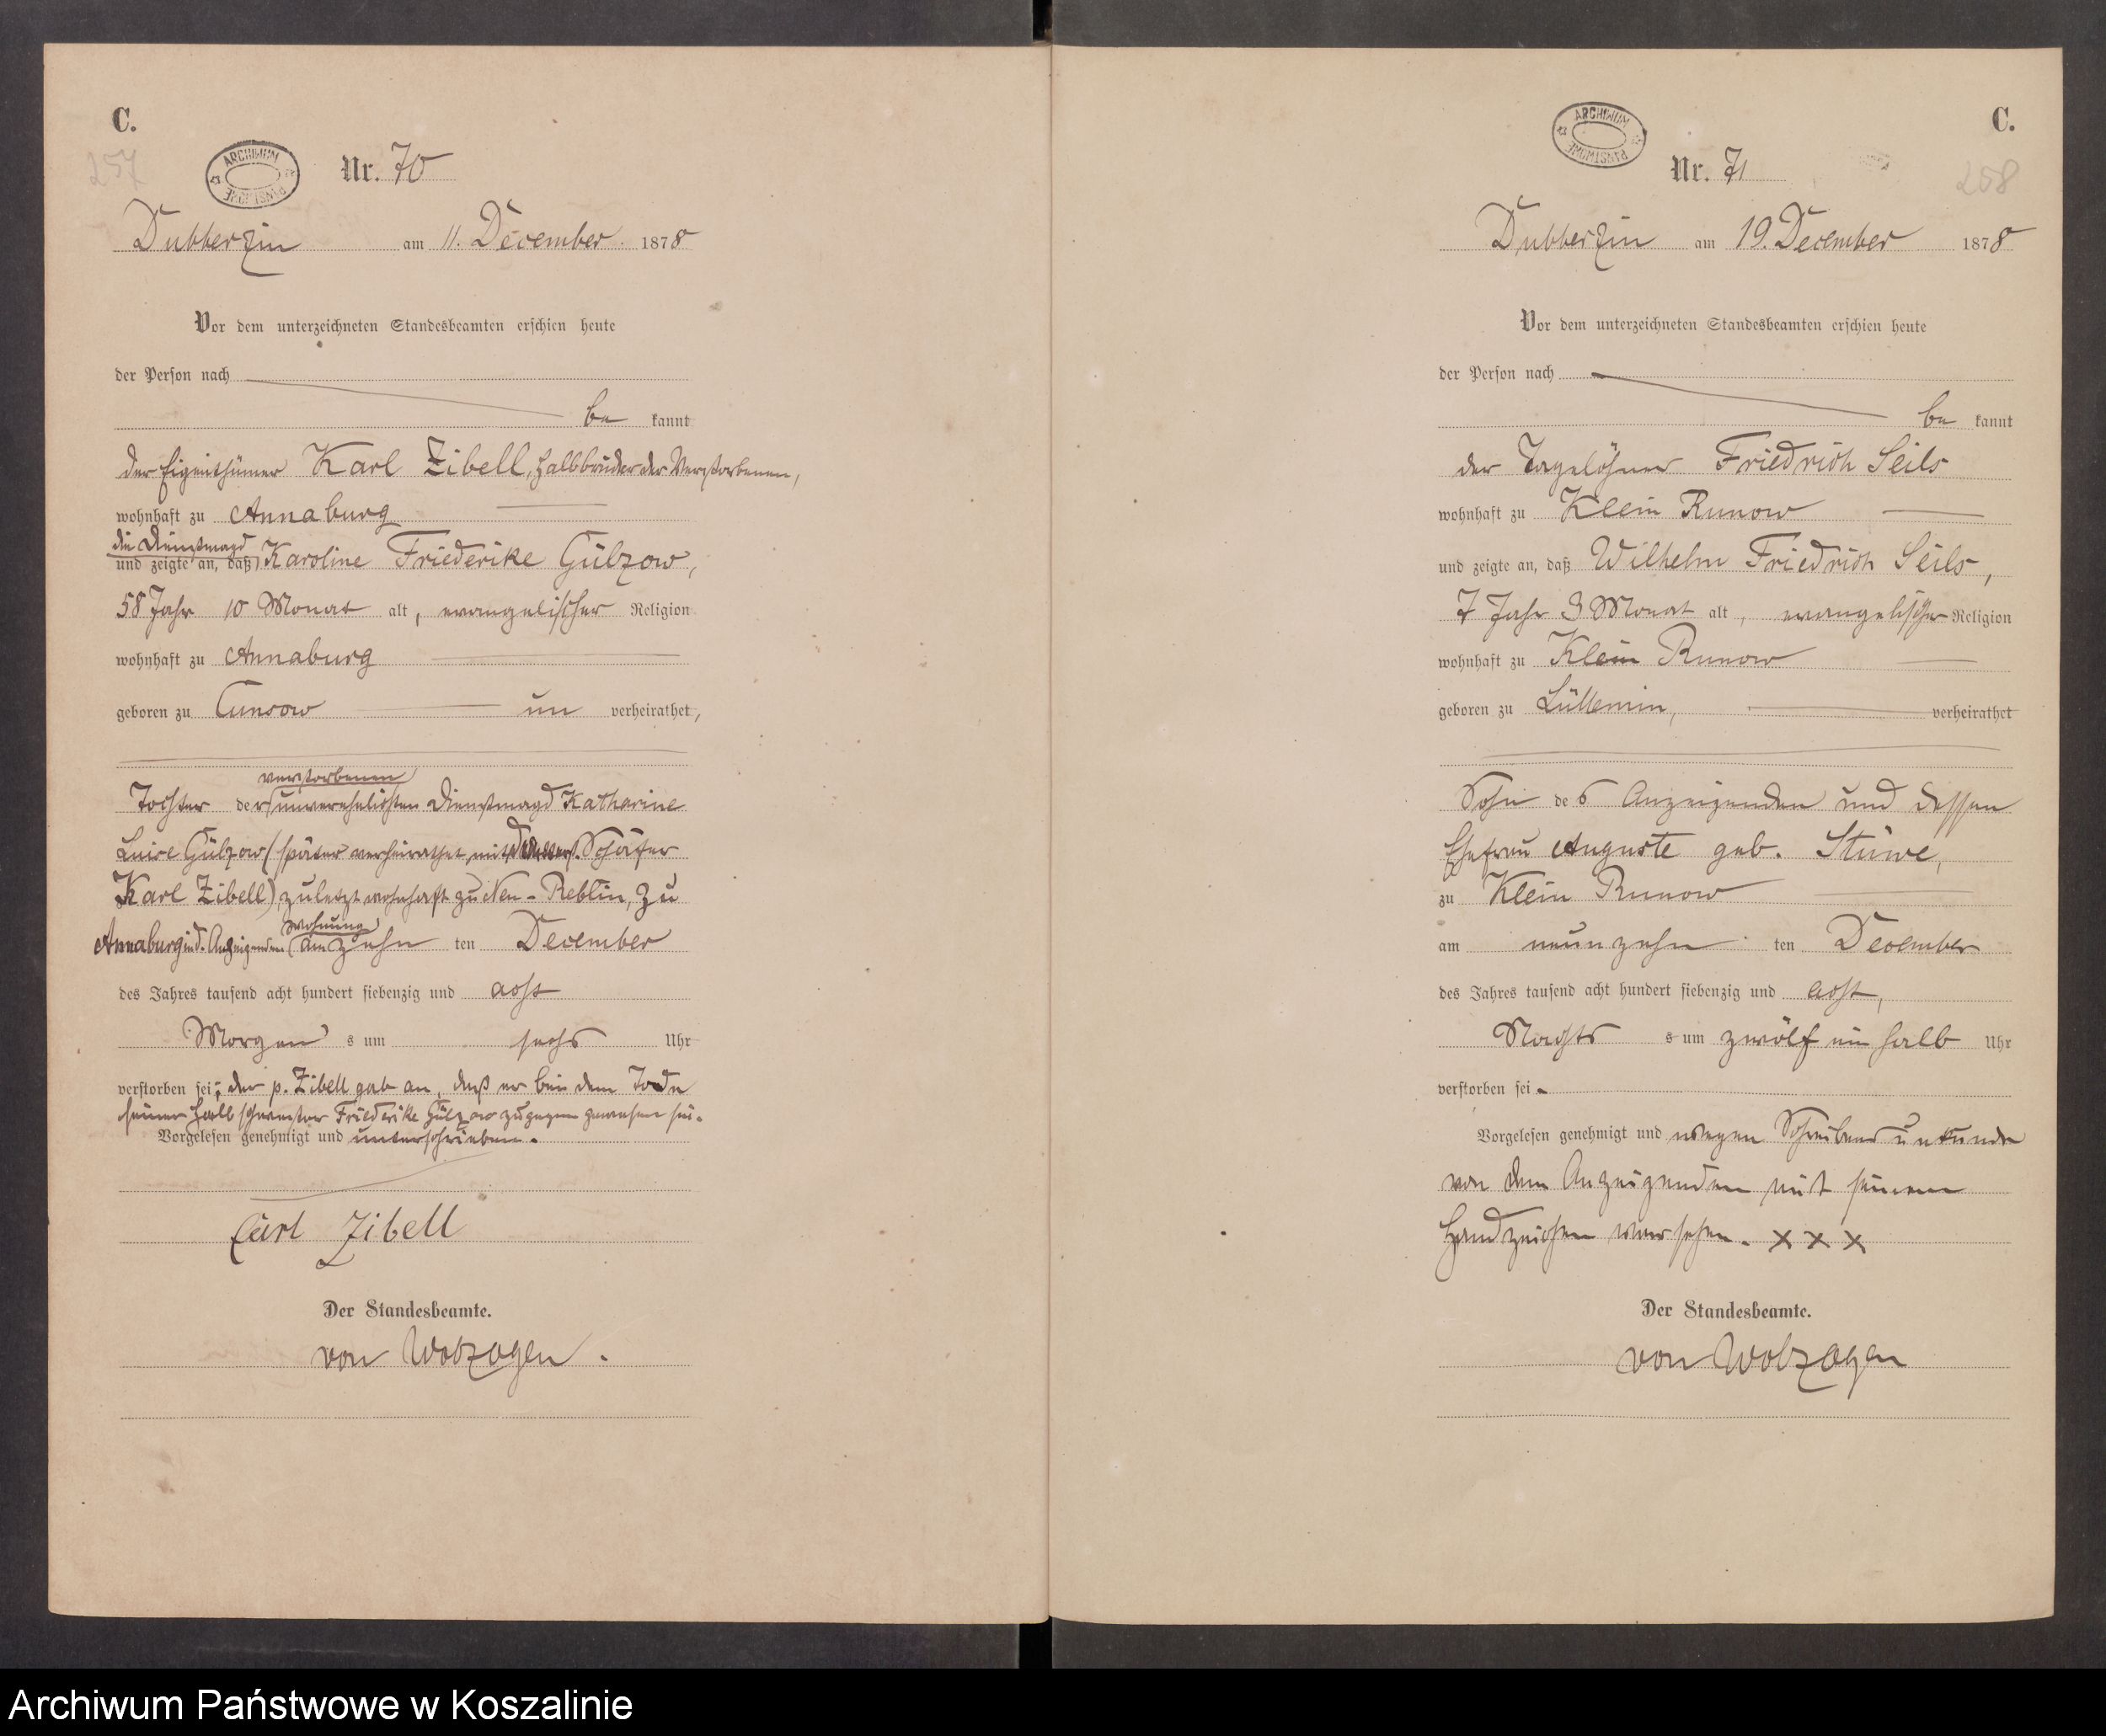 C.
257
ARCHIWUM PAŃSTWOWE
Nr. 70
Dubberzin am 11. December 1878
Vor dem unterzeichneten Standesbeamten erschien heute
der Person nach
be kannt
der Eigenthümer Karl Zibell, Halbbruder der Verstorbenen,
wohnhaft zu Annaburg
die Dienstmagd
und zeigte an, daß Karoline Friederike Gülzow,
58 Jahr 10 Monat alt, evangelischer Religion
wohnhaft zu Annaburg
geboren zu Cunsow un verheirathet,
verstorbenen
Tochter der unverehelichten Dienstmagd Katharine
Luise Gülzow (später verheirathet mit verst. Schäfer
Karl Zibell), zuletzt wohnhaft zu Neu-Reblin, zu
Wohnung
Annaburg in d. Anzeigenden am zehn ten December
des Jahres tausend acht hundert siebenzig und acht
Morgen s um sechs Uhr
verstorben sei; der p. Zibell gab an, daß er bei dem Tode
seiner Halbschwester Friederike Gülzow zugegen gewesen sei.
Vorgelesen genehmigt und unterschrieben.
Carl Zibell
Der Standesbeamte.
von Wobzogen.
C.
258
ARCHIWUM PAŃSTWOWE
Nr. 71
Dubberzin am 19. December 1878
Vor dem unterzeichneten Standesbeamten erschien heute
der Person nach
be kannt
der Tagelöhner Friedrich Seils
wohnhaft zu Klein Runow
und zeigte an, daß Wilhelm Friedrich Seils,
7 Jahr 3 Monat alt, evangelischer Religion
wohnhaft zu Klein Runow
geboren zu Lüllemin, verheirathet
Sohn des Anzeigenden und dessen
Ehefrau Auguste geb. Stüwe,
zu Klein Runow
am neunzehn ten December
des Jahres tausend acht hundert siebenzig und acht,
Nachts s um zwölf ein halb Uhr
verstorben sei.
Vorgelesen genehmigt und wegen Schreibens unkunde
von dem Anzeigenden mit seinem
Handzeichen versehen. x x x
Der Standesbeamte.
von Wobzogen
Archiwum Państwowe w Koszalinie